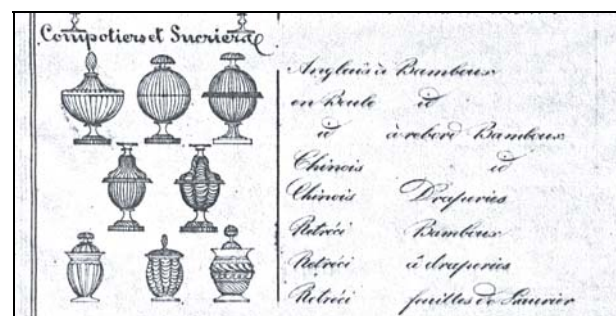 Compotiers et Sucriers
Anglais à Bambous
en Boule id
id à rebord Bambous
Chinois id
Chinois Draperies
Rétréci Bambous
Rétréci à draperies
Rétréci feuilles de Laurier